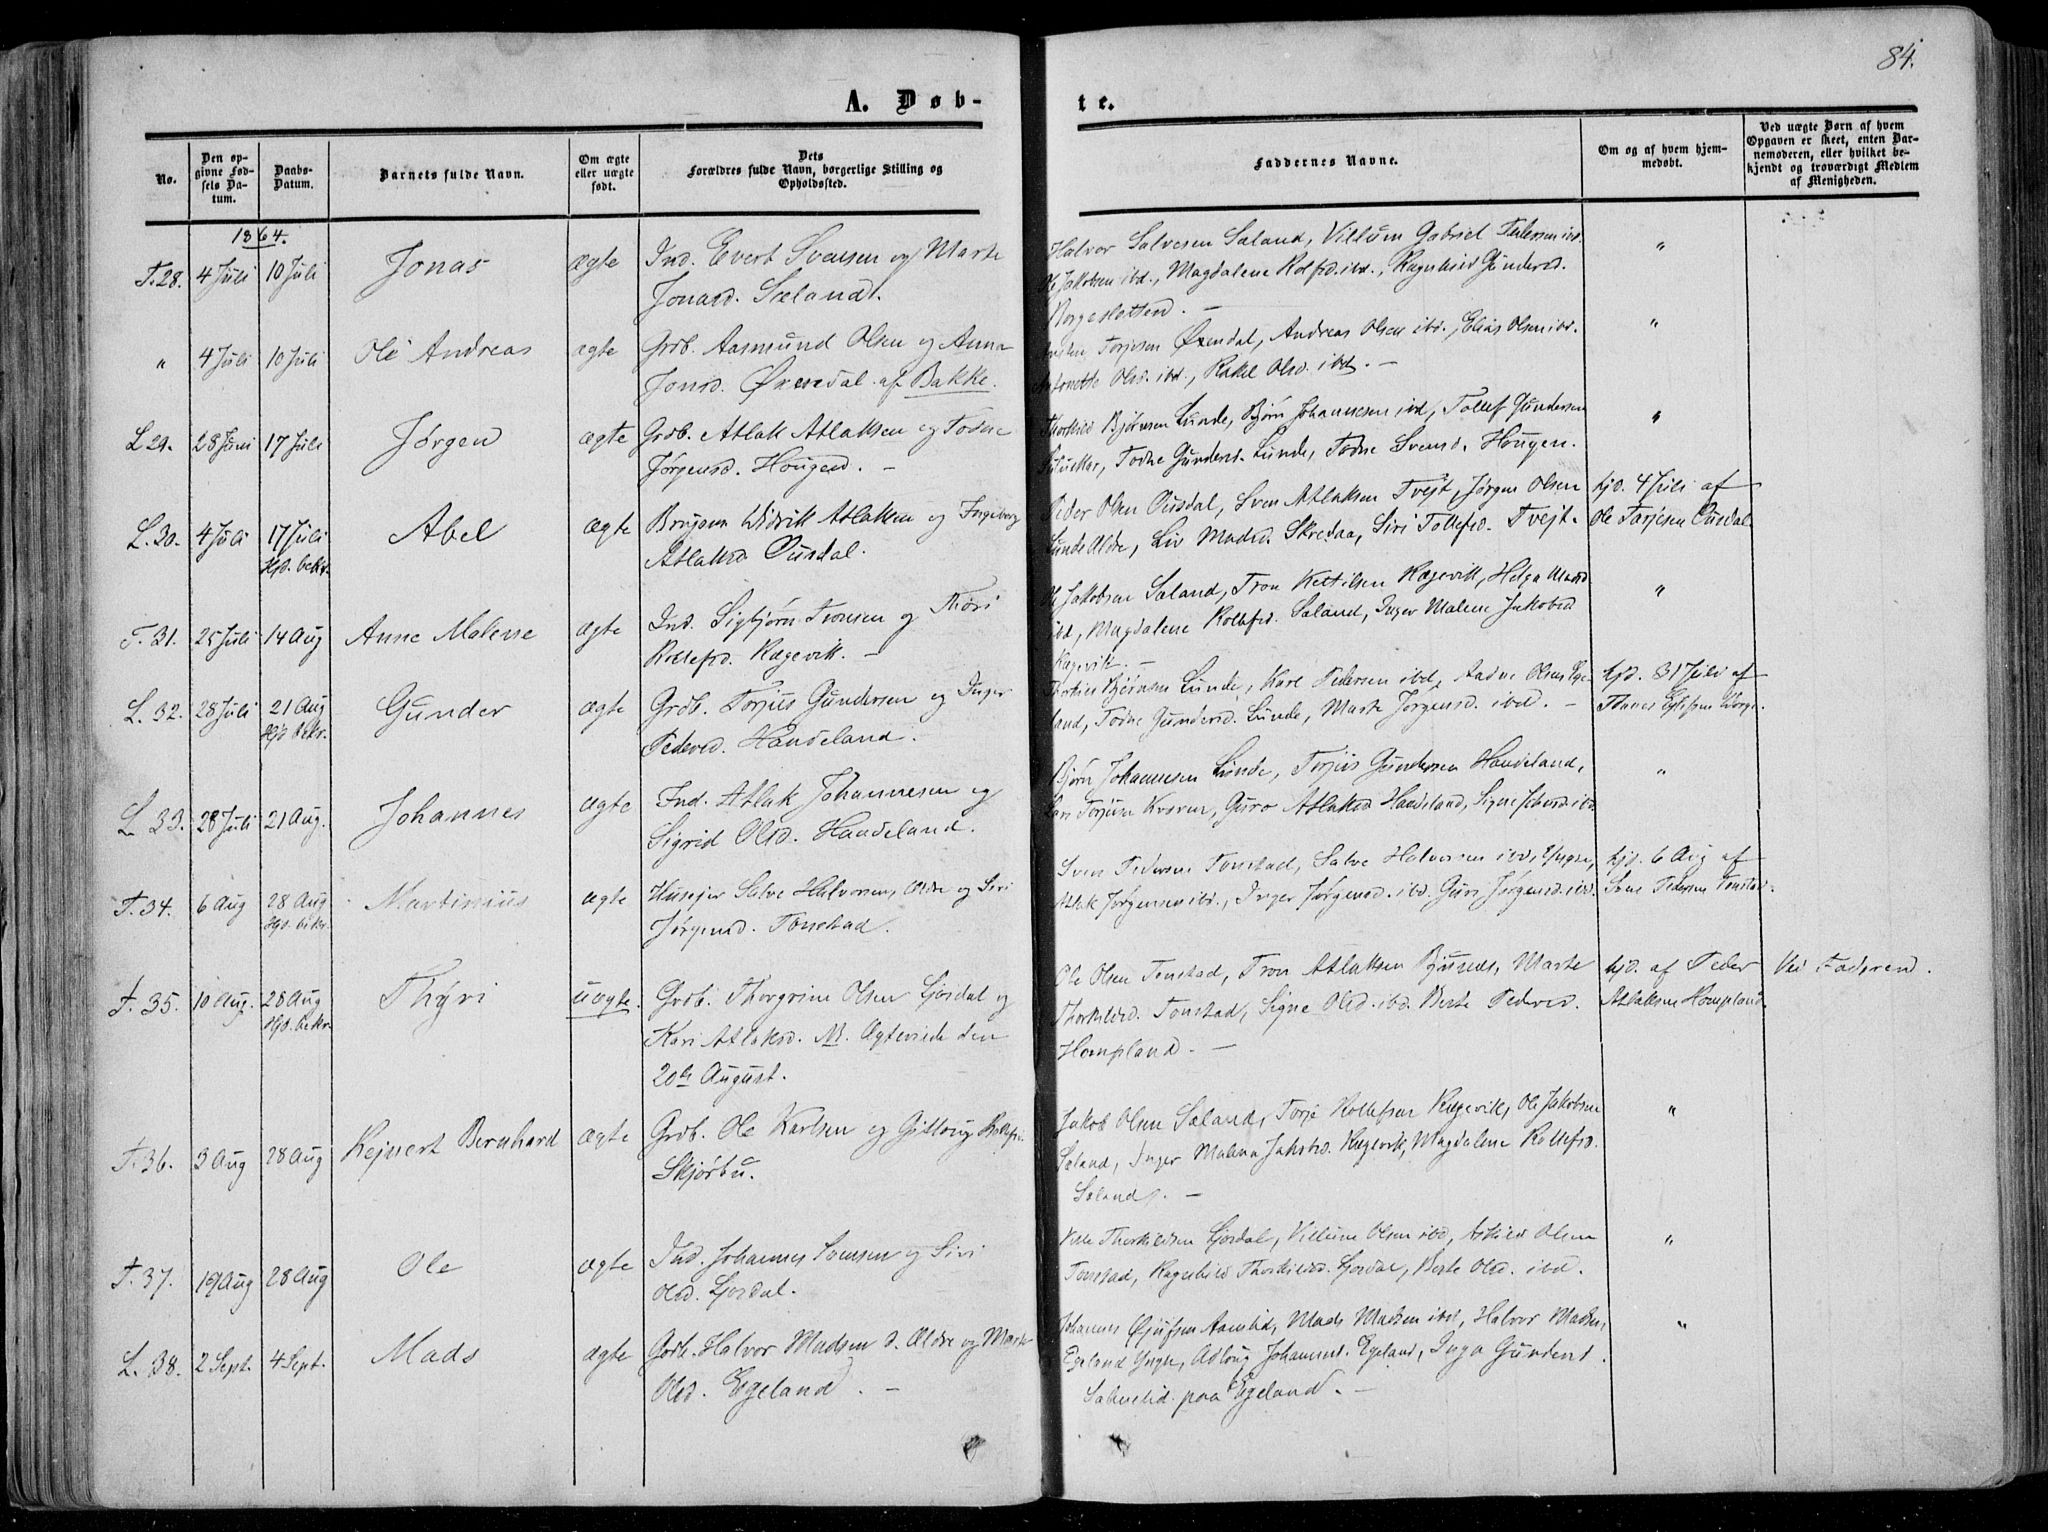 84.
A. Døb-
te.
No.
Den op-
givne Fød-
sels Da-
tum.
Daabs-
Datum.
Barnets fulde Navn.
Om ægte
eller uægte
født.
Dets
Forældres fulde Navn, borgerlige Stilling og
Opholdssted.
Faddernes Navne.
Om og af hvem hjem-
medøbt.
Ved uægte Børn af hvem
Opgaven er skeet, enten Bar-
nemoderen, eller hvilket be-
kjendt og troværdigt Medlem
af Menigheden.
1864.
T. 28. 4 Juli 10 Juli Jonas ægte Ind. Evert Svensen og Marte
Jonasd. Sæland.
Halvor Salvesen Sæland, Villum Gabriel Pedersen ibd.
Ole Jakobsen ibd., Magdalene Rolfsd. ibd., Ragnhild Gundersd.
"
" 4 Juli 10 Juli Ole Andreas ægte Grdb. Aasmund Olsen og Anna
Jonsd. Øxendal af Bakke.
Torjesen Øxendal, Andreas Olsen ibd., Elias Olsen ibd.
Antonette Olsd. ibd., Rakel Olsd. ibd. —
"
L 29. 28 Juni 17 Juli Jørgen ægte Grdb. Atlak Atlaksen og Todne
Jørgensd. Hougen. —
Thorkild Bjørnsen Lunde, Bjørn Johannesen ibd, Tollef Gundersen
Todne Gundersd. Lunde, Todne Svensd. Hougen.
"
L. 30. 4 Juli 17 Juli Abel ægte Brugsm Didrik Atlaksen og Ingeborg
Hjd. bekr. Atlaksd Ousdal.
Peder Olsen Ousdal, Sven Atlaksen Tvejt, Jørgen Olsen
Lunde Aldre, Liv Madsd. Skredaa, Siri Tollefsd. Tvejt.
hjd. 4 Juli af
Ole Tarjesen Ousdal
T. 31. 25 Juli 14 Aug Anne Malene ægte Ind. Sigbjørn Tronsen og Thori
Rollefsd. Rægevik. —
Ole Jakobsen Sæland, Tron Kettilsen Rægevik, Helga
ibd, Magdalene Rollefsd. Sæland, Inger Malene Jakobsd
Rægevik. —
"
L. 32. 28 Juli 21 Aug Gunder ægte Grdb. Torjus Gundersen og Inger
Hjd bekr. Pedersd. Haudeland.
Thorkild Bjørnsen Lunde, Karl Pedersen ibd, Aadne Olsen Ege-
land, Todne Gundersd. Lunde, Marte Jørgensd. ibd. —
hjd. 31 Juli af
L 33. 28 Juli 21 Aug. Johannes ægte Ind. Atlak Johannesen og
Sigrid Olsd. Haudeland.
Bjørn Johannesen Lunde, Torjus Gundersen Haudeland,
Lars Torjusen Kvæven, Guro Atlaksd Haudeland, Signe ibd
"
T. 34. 6 Aug 28 Aug Martinius ægte Husejer Salve Halvorsen, Aldre og Siri
Hjd. bekr. Jørgensd. Tonstad.
Sven Pedersen Tonstad, Salve Halvorsen ibd, Yngre,
Atlak Jørgensen ibd., Inger Jørgensd. ibd. Guri Jørgensd. ibd.
hjd. 6 Aug af
Sven Pedersen Tonstad.
T. 35. 10 Aug. 28 Aug Thyri uægte. Grdb. Thorgrim Olsen Fjosdal og
Hjd. bekr. Kari Atlaksd. N. Ægteviede den
20de August.
Ole Olsen Tonstad, Tron Atlaksen Marte
Thorkildsd. Tonstad, Signe Olsd. ibd. Berte Pedersd.
Hompland. —
hjd. af Peder
Atlaksen Hompland
Ved Faderen.
T. 36. 3 Aug 28 Aug Rejnert Bernhard ægte Grdb. Ole Karlsen og Gitlaug Rollefsd.
Skjørbu.
Jakob Olsen Sæland, Torje Rollefsen Rægevik, Ole Jakobsen
Sæland, Inger Malena Jakobsd. Rægevik, Magdalene Rollefsd.
Sæland. —
"
T. 37. 19 Aug 28 Aug Ole ægte Ind. Johannes Svensen og Siri
Olsd. Fjosdal.
Thorkildsen Fjosdal, Villum Olsen ibd, Askild Olsen
Tonstad, Ragnhild Thorkildsd. Fjosdal, Berte Olsd. ibd.
"
L. 38. 2 Sept. 4 Sept. Mads ægte Grdb. Halvor Madsen d. Aldre og Marte
Olsd. Egeland. —
Johannes Aamlid, Mads Madsen ibd, Halvor Madsen
Egeland Yngre, Adloug Johannesd. Egeland, Inga Gundersd.
paa Egeland. —
"